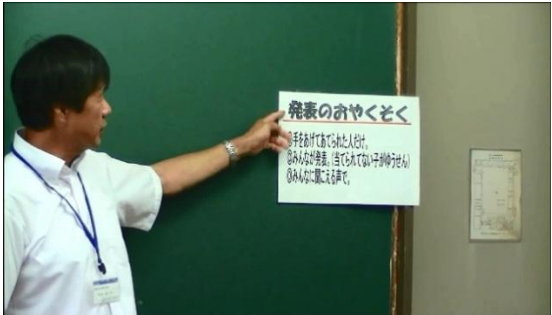 発表のおやくそく
①手をあげてあてられた人だけ。
②みんなが発表。(当てられてない子がゆうせん)
③みんなに聞こえる声で。